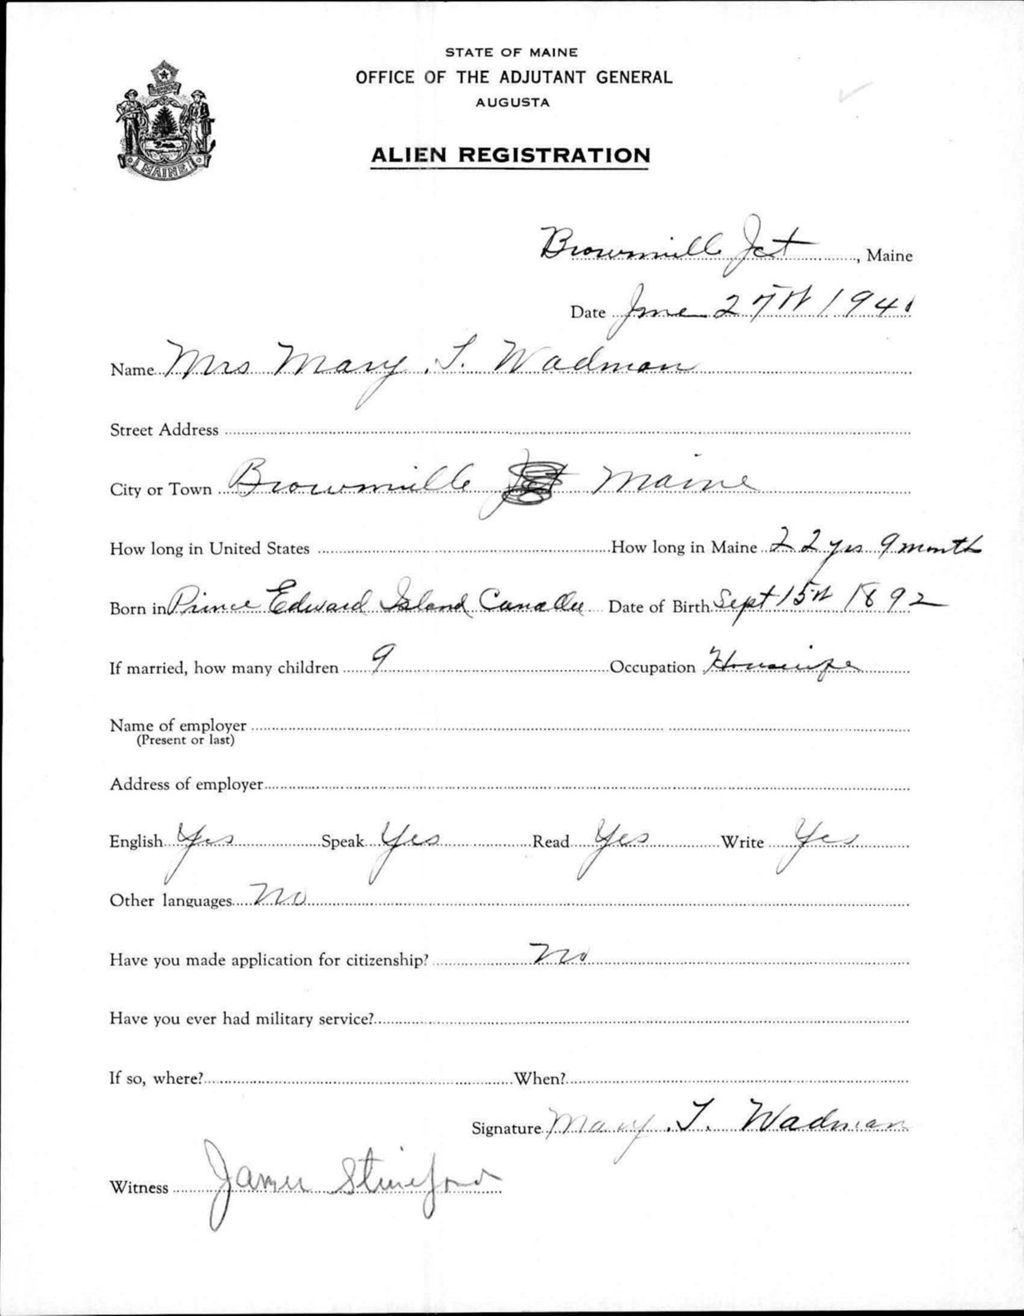 STATE OF MAINE
OFFICE OF THE ADJUTANT GENERAL
AUGUSTA
ALIEN REGISTRATION
MAINE
Brownville Jct, Maine
Date June 27th 1940
Name Mrs Mary. T. Wadman
Street Address
City or Town Brownville Jct Maine
How long in United States How long in Maine 22 yrs 9 month
Born in Prince Edward Island Canada Date of Birth Sept 15th 1892
If married, how many children 9 Occupation Housewife
Name of employer
(Present or last)
Address of employer
English Yes Speak Yes Read Yes Write Yes
Other languages No
Have you made application for citizenship? No
Have you ever had military service?
If so, where? When?
Signature Mary. T. Wadman
Witness James